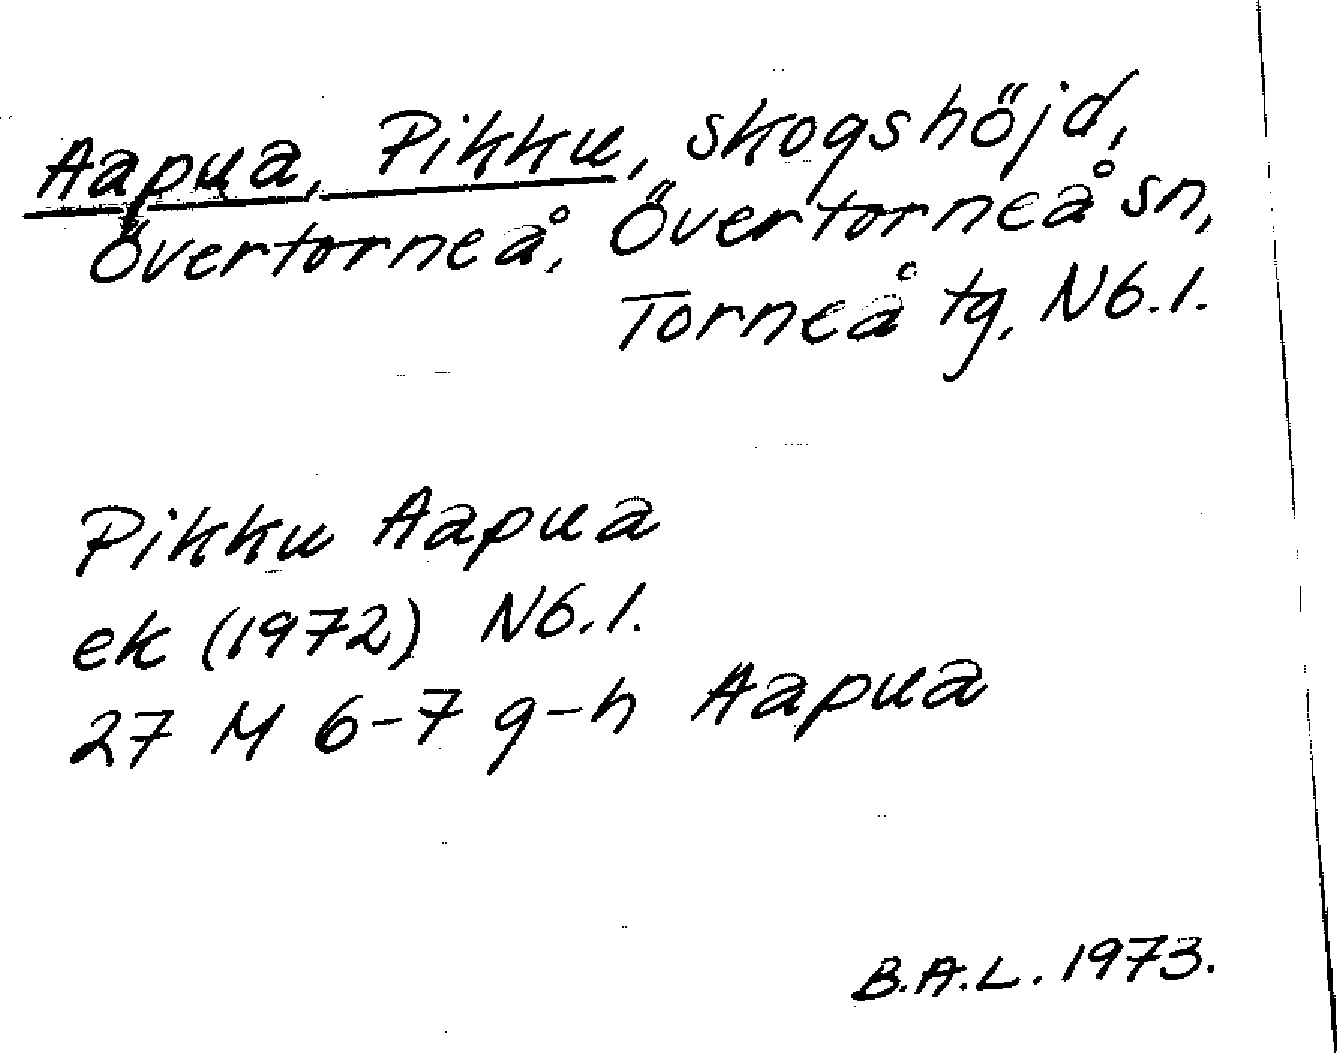 Aapua, Pikku, skogshöjd,
Övertorneå, Övertorneå sn,
Torneå tg, Nb.l.
Pikku Aapua
ek (1972) Nb.l.
27 M 6-7 g-h Aapua
B.A.L. 1973.